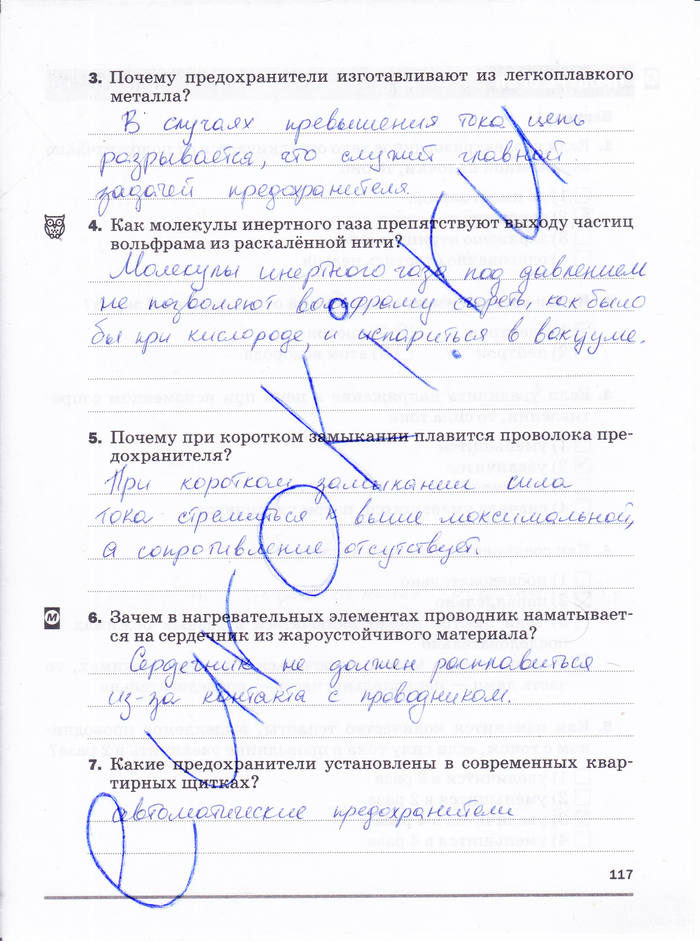 3. Почему предохранители изготавливают из легкоплавкого
металла?
В случаях превышения тока цепь
разрывается, что служит главной
задачей предохранителя.
4. Как молекулы инертного газа препятствуют выходу частиц
вольфрама из раскалённой нити?
Молекулы инертного газа под давлением
не позволяют вольфраму сгореть, как было
бы при кислороде, и испариться в вакууме.
5. Почему при коротком замыкании плавится проволока пре-
дохранителя?
При коротком замыкании сила
тока стремиться к выше максимальной,
а сопротивление отсутствует.
М
6. Зачем в нагревательных элементах проводник наматывает-
ся на сердечник из жароустойчивого материала?
Сердечник не должен расплавиться
из-за контакта с проводником.
7. Какие предохранители установлены в современных квар-
тирных щитках?
автоматические предохранители
117